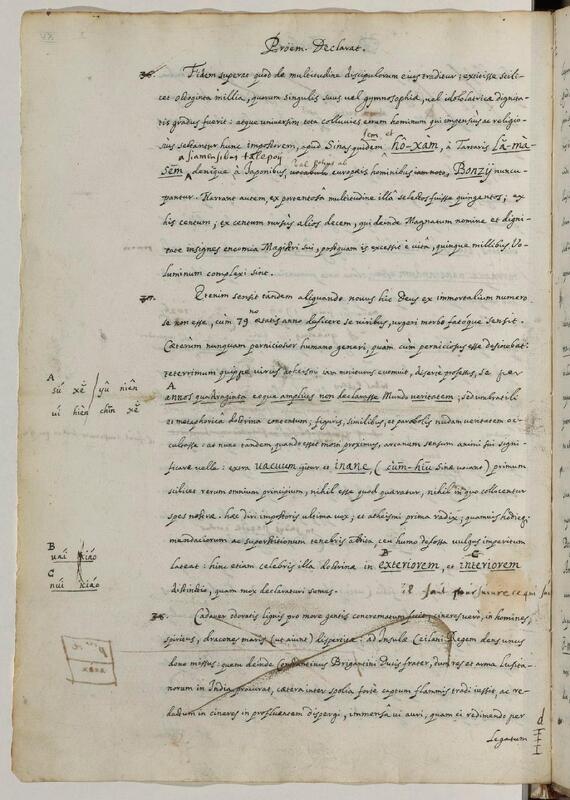 Proem. Declarat.
36. Fidem superat quod de multitudine discipulorum eius traditur; extitisse scili-
cet octoginta millia, quorum singulis suus vel gymnosophiæ, vel idololatricæ dignita-
tis gradus fuerit: atque universim tota colluvies eorum hominum qui impensius ac religio-
sius sectantur hunc impostorem, apud Sinas quidem hô-xam, à Tartaris Lâ-ma-
sem et
a Siamensibus talepoij
sēm, denique à Japonibus, vocabulo europæis hominibus iam noto, Bonzij nuncu-
pantur. Narrant autem, ex portentosa multitudine illâ selectos fuisse quingentos; ex
his centum; ex centum rursus alios decem, qui deinde Magnatum nomine et digni-
tate insignes encomia Magistri sui, postquam is excessit è vitâ, quinque millibus Vo-
luminum complexi sint.
37. Etenim sensit tandem aliquando novus hic Deus ex immortalium numero
se non esse, cùm 79 no ætatis anno deficere se viribus, urgeri morbo fatoque sensit.
Cæterùm nunquam perniciosior humano generi, quàm cum perniciosus esse desinebat:
teterrimum quippe virus atheismi iam moriturus evomuit, disertè professus, se per
A
annos quadraginta eoque ampliùs non declarasse Mundo veritatem; sed umbratili
et metaphoricâ doctrinâ contentum; figuris, similibus, et parabolis nudam veritatem oc-
cultasse: at nunc tandem, quando esset morti proximus, arcanum sensum animi sui signi-
ficare velle: extra vacuum igitur et inane, (cūm-hiū Sinæ vocant) primum
scilicet rerum omnium principium, nihil esse quod quæratur, nihil in quo collocentur
spes nostræ. hæc diri impostoris ultima vox; et atheismi prima radix, quamvis hodie
mendaciorum ac superstitionum tenebris abdita, ceu humo defossa vulgus imperitum
B C
lateat: hinc etiam celebris illa doctrinæ in exteriorem, et interiorem
distinctio, quam mox declaraturi sumus.
38. Cadaver odoratis lignis pro more gentis concrematum fuit: cineres verò, in homines,
spiritus, dracones maris (ut aiunt) dispertitæ: ad Insulæ Ceilani Regem dens unus
dono missus: quem deinde Constantinus Brigantini Ducis frater, dum res et arma Lusita-
norum in India procurat, cætera inter spolia fortè captum flammis tradi iussit, ac re-
dactum in cineres in profluentem dispergi, immensâ vi auri, quam ei redimendo per
Legatum
A
sú xĕ / yû niên
ví hièn chīn xĕ
B
vaí kiáo
C
nuí kiáo